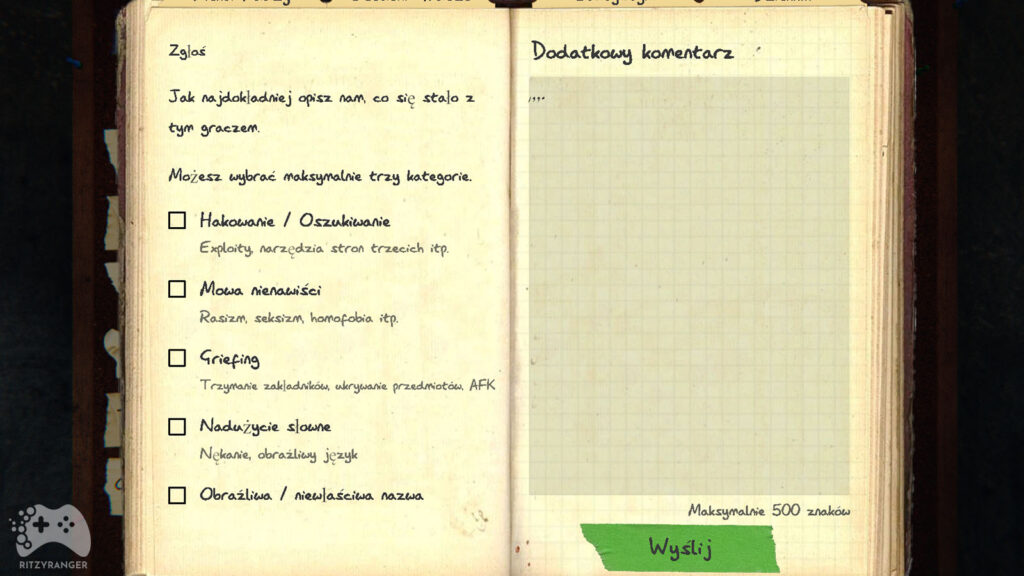 Zgłoś
Jak najdokładniej opisz nam, co się stało z
tym graczem.
Możesz wybrać maksymalnie trzy kategorie.
Hakowanie / Oszukiwanie
Exploity, narzędzia stron trzecich itp.
Mowa nienawiści
Rasizm, seksizm, homofobia itp.
Griefing
Trzymanie zakładników, ukrywanie przedmiotów, AFK
Nadużycie słowne
Nękanie, obraźliwy język
Obraźliwa / niewłaściwa nazwa
Dodatkowy komentarz
Maksymalnie 500 znaków
Wyślij
RITZYRANGER